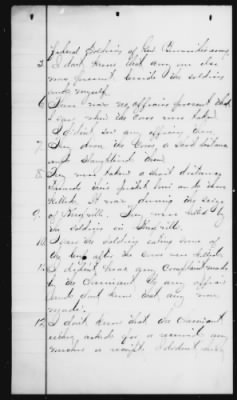 Federal Soldiers of Gen Burnside's army
5. I don't know that any one else
was present beside the soldiers
and myself.
6. There was no officers present that
I saw when the cows were taken.
I didn't see any officers there.
7. They drove the cows a short distance
and slaughtered them
8. They were taken a short distance
towards their picket line and there
killed. It was during the seige
of Knoxville. They were killed by
the soldiers in Knoxville.
10. I saw the soldiers eating some of
the beef after the cows were killed.
11. I didn't hear any complaint made
to the claimant to any officer
and don't know that any was
made.
12. I don't know that the claimant
either asked for a receipt any
voucher or receipt. I didn't